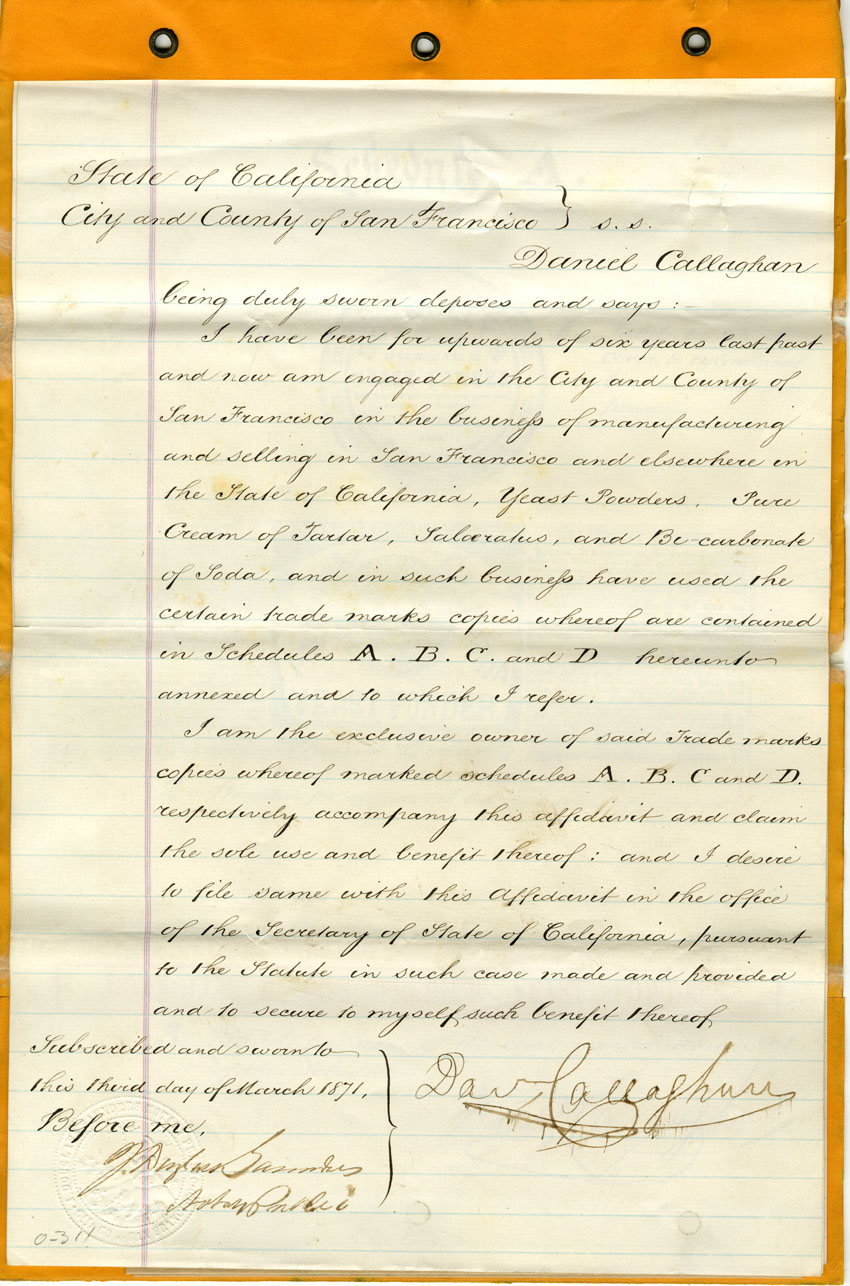 State of California
City and County of San Francisco } s. s.
Daniel Callaghan
being duly sworn deposes and says :-
I have been for upwards of six years last past
and now am engaged in the City and County of
San Francisco in the business of manufacturing
and selling in San Francisco and elsewhere in
the State of California, Yeast Powders, Pure
Cream of Tartar, Salæratus, and Bi-carbonate
of Soda, and in such business have used the
certain trade marks copies whereof are contained
in Schedules A. B. C. and D hereunto
annexed and to which I refer.
I am the exclusive owner of said Trade marks
copies whereof marked schedules A. B. C and D.
respectively accompany this affidavit and claim
the sole use and benefit thereof: and I desire
to file same with this Affidavit in the office
of the Secretary of State of California, pursuant
to the Statute in such case made and provided
and to secure to myself such benefit thereof
Subscribed and sworn to
this third day of March 1871.
Before me,
Dan Callaghan
J. Douglass Saunders
Notary Public
0-311